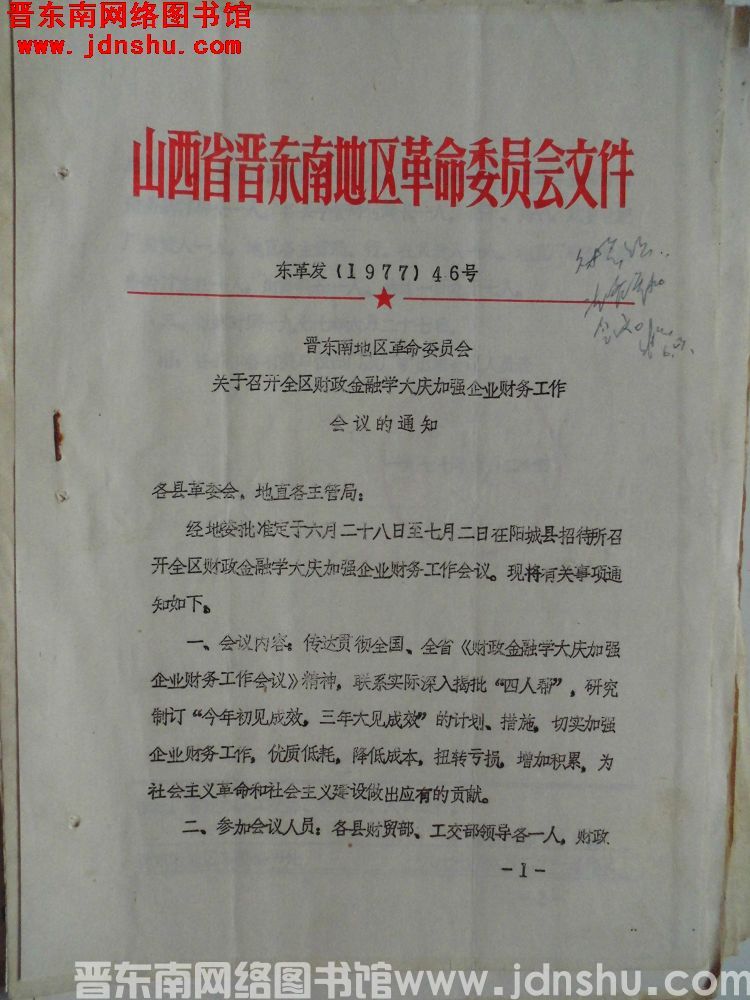 晋东南网络图书馆
www.jdnshu.com
山西省晋东南地区革命委员会文件
东革发(1977)46号
晋东南地区革命委员会
关于召开全区财政金融学大庆加强企业财务工作
会议的通知
各县革委会、地直各主管局：
经地委批准定于六月二十八日至七月二日在阳城县招待所召
开全区财政金融学大庆加强企业财务工作会议。现将有关事项通
知如下。
一、会议内容：传达贯彻全国、全省《财政金融学大庆加强
企业财务工作会议》精神，联系实际深入揭批“四人帮”，研究
制订“今年初见成效，三年大见成效”的计划、措施，切实加强
企业财务工作，优质低耗，降低成本，扭转亏损，增加积累，为
社会主义革命和社会主义建设做出应有的贡献。
二、参加会议人员：各县财贸部、工交部领导各一人，财政
-1-
晋东南网络图书馆www.jdnshu.com